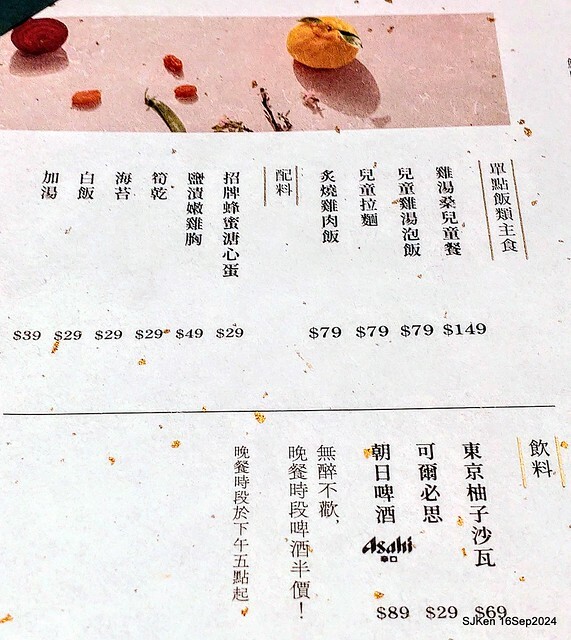 單點飯類主食
雞湯桑兒童餐 $149
兒童雞湯泡飯 $79
兒童拉麵 $79
炙燒雞肉飯 $79
配料
招牌蜂蜜溏心蛋 $29
鹽漬嫩雞胸 $49
筍乾 $29
海苔 $29
白飯 $29
加湯 $39
飲料
東京柚子沙瓦 $69
可爾必思 $29
朝日啤酒 Asahi 辛口 $89
無醉不歡,
晚餐時段啤酒半價！
晚餐時段於下午五點起
SJKen 16Sep2024